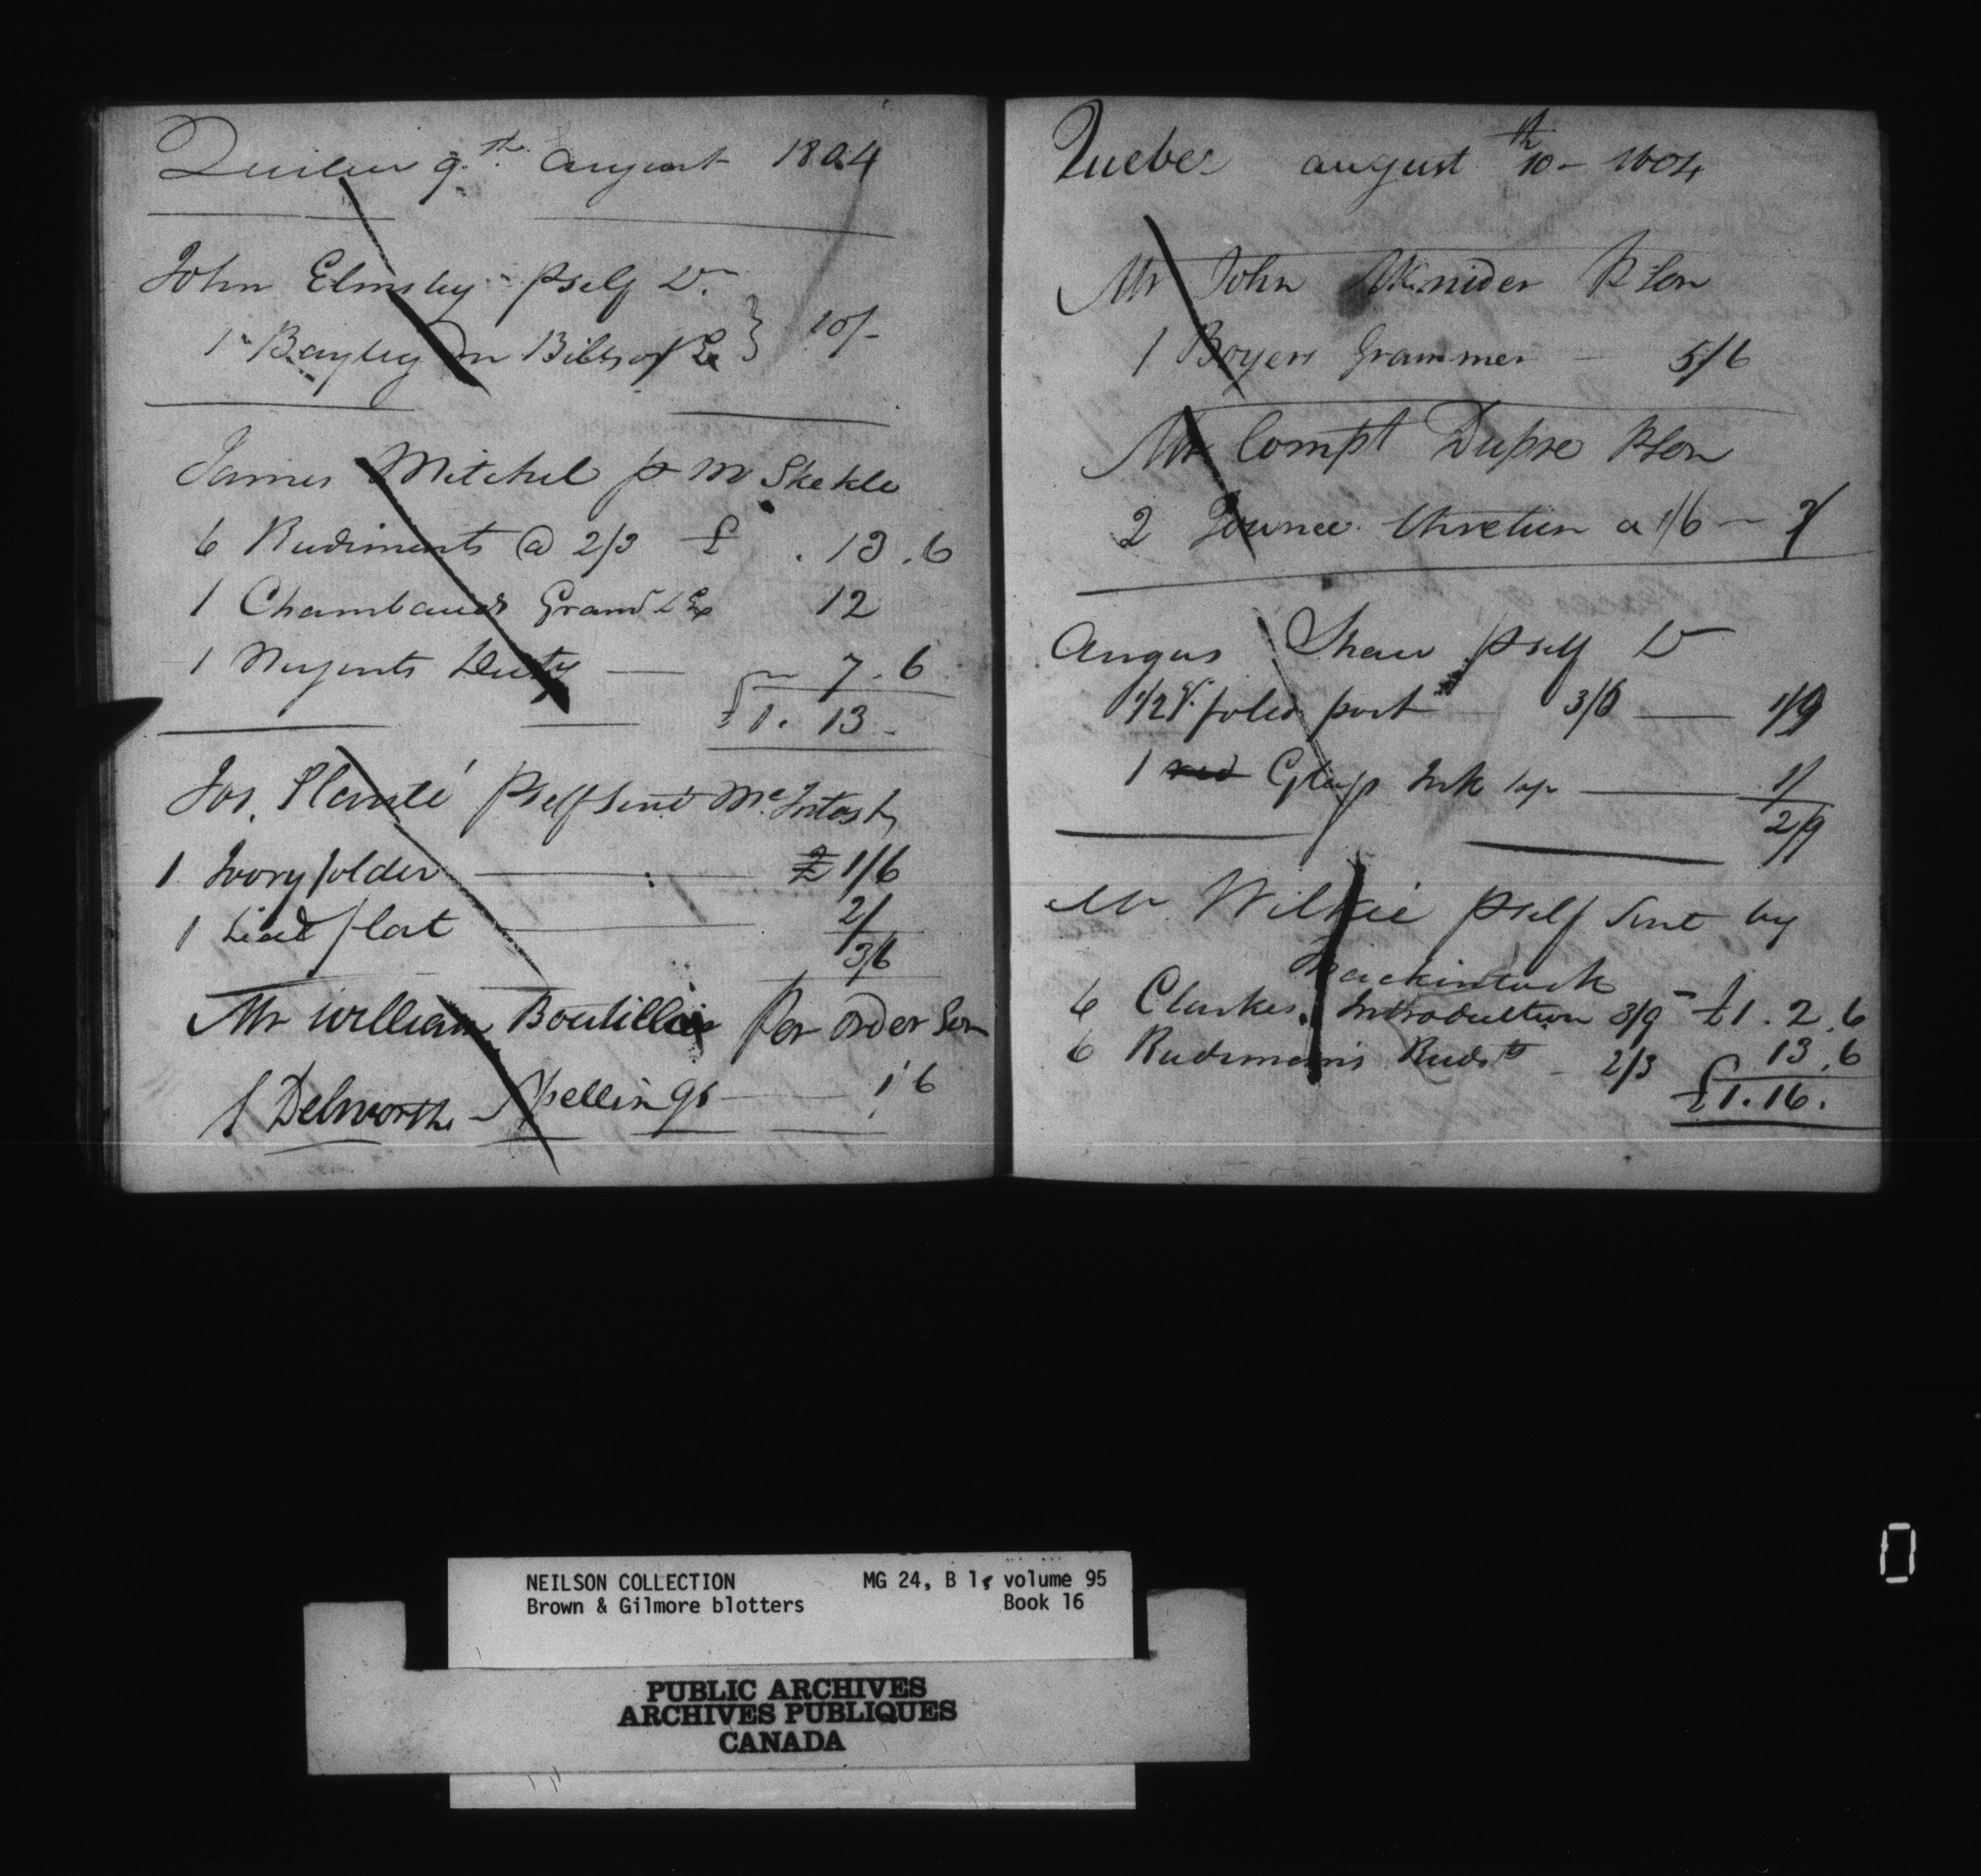 Quebec 9.th August 1804
John Elmsley pself Dr
1 Bayley on Bills of Ex } 10/-
James Mitchel p Mr Shekle
6 Rudiments @ 2/3 £ . 13 . 6
1 Chambauds Gram & Ex 12
1 Nugents Dicty 7 . 6
£1 . 13 -
Jos. Planté pself sent McIntosh
1 Ivory folder 1/6
1 Lead flat 2/
3/6
Mr William Boutillier Per order Son
1 Delworth Spellings 1 6
Quebec august 10th - 1804
Mr John Munider P Son
1 Boyers Grammer 5/6
Mr Compt Dupre P Son
2 Journee Chretien a 1/6 -
Angus Shaw pself Dr
1/2 qr. folio post 3/6 1/9
1 red Glass Ink top 1/
2/9
Mr. Wilkie pself Sent by
Mackintosh
6 Clarkes Introduction 3/9 - £1 . 2 . 6
6 Rudimans Rudts 2/3 13 . 6
£1 . 16 .
NEILSON COLLECTION MG 24, B 1, volume 95
Brown & Gilmore blotters Book 16
PUBLIC ARCHIVES
ARCHIVES PUBLIQUES
CANADA